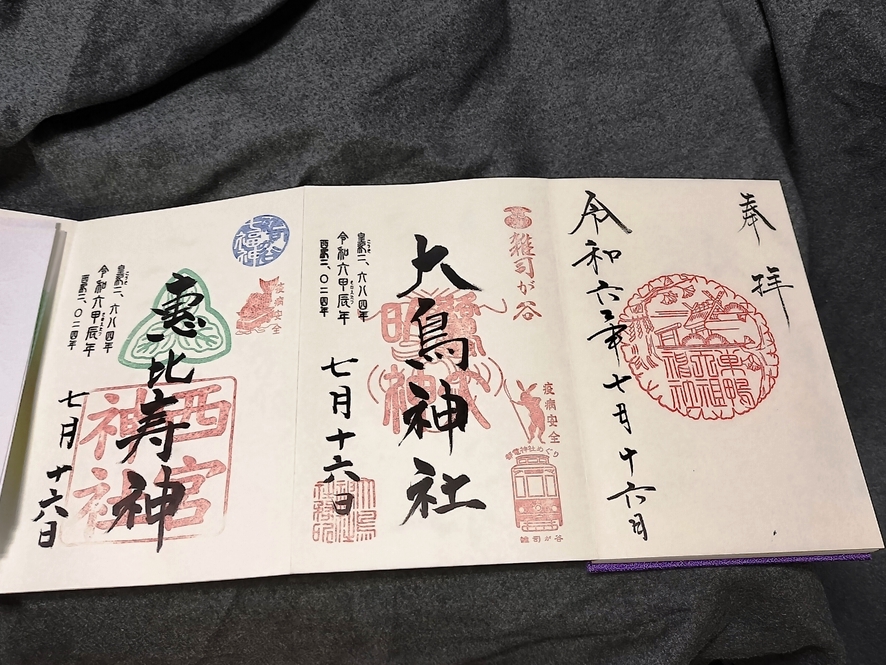 奉拝
令和六年七月十六日
雑司が谷
疫病安全
都電神社めぐり
雑司が谷
大鳥神社
皇紀二、六八四年
令和六甲辰年
西暦二、〇二四年
七月十六日
七福神
疫病安全
恵比寿神
西宮神社
皇紀二、六八四年
令和六甲辰年
西暦二、〇二四年
七月十六日